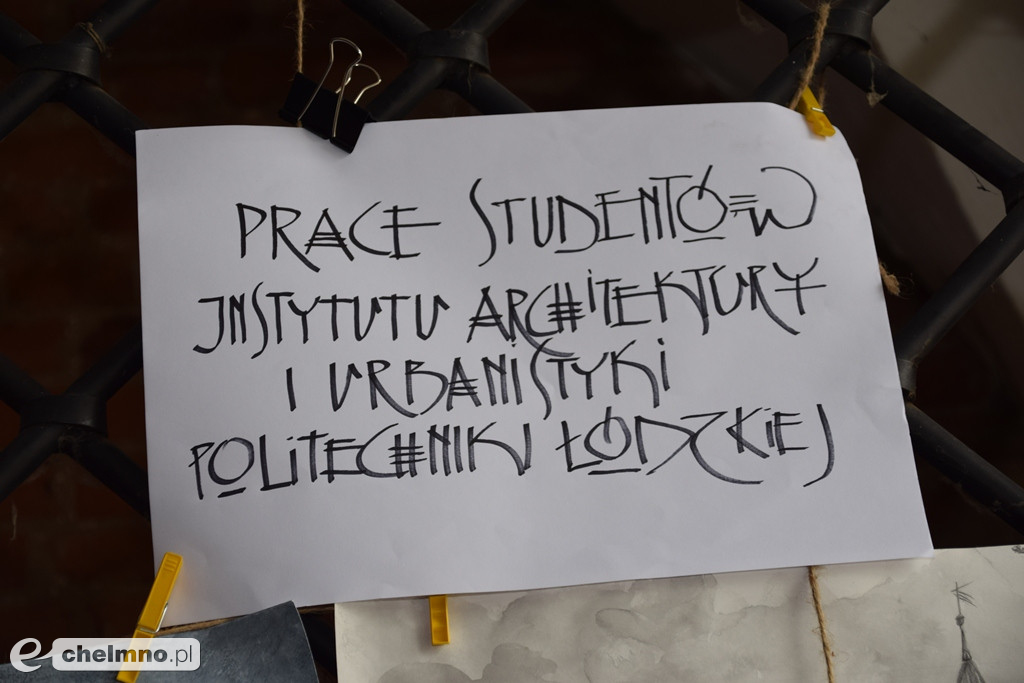 PRACE STUDENTÓW
INSTYTUTU ARCHITEKTURY
I URBANISTYKI
POLITECHNIKI ŁÓDZKIEJ
e chelmno.pl